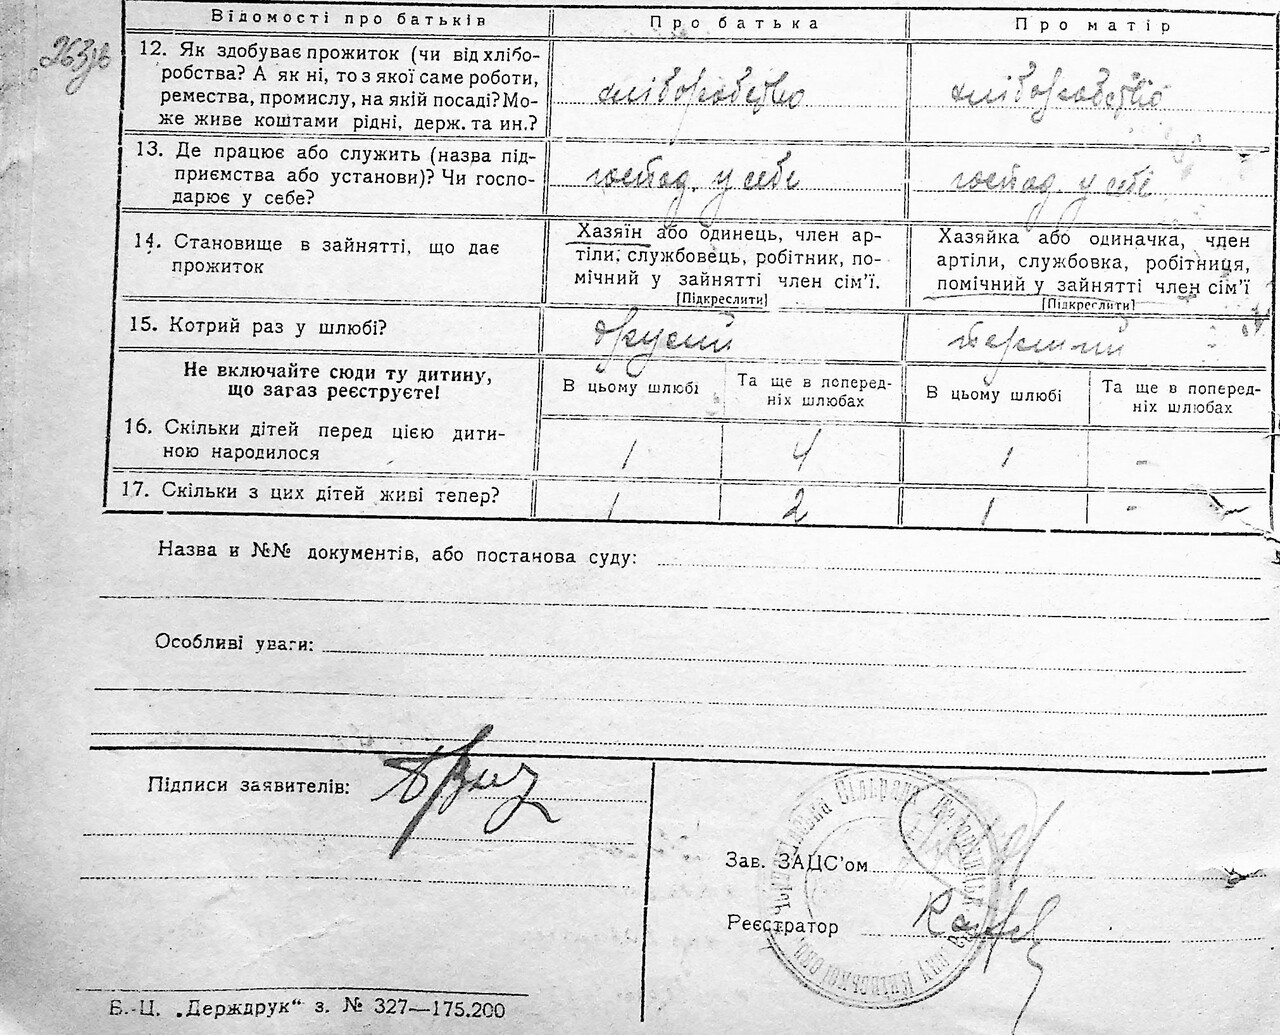 263зв
Відомості про батьків
Про батька
Про матір
12. Як здобуває прожиток (чи від хлібо-
робства? А як ні, то з якої саме роботи,
ремества, промислу, на якій посаді? Мо-
же живе коштами рідні, держ. та ин.?
хліборобство
хліборобство
13. Де працює або служить (назва під-
приємства або установи)? Чи госпо-
дарює у себе?
господ. у себе
господ. у себе
14. Становище в зайнятті, що дає
прожиток
Хазяїн або одинець, член ар-
тілі, службовець, робітник, по-
мічний у зайнятті член сім'ї.
[Підкреслити]
Хазяйка або одиначка, член
артіли, службовка, робітниця,
помічний у зайнятті член сім'ї
[Підкреслити]
15. Котрий раз у шлюбі?
другий
перший
Не включайте сюди ту дитину,
що загаз реєструєте!
В цьому шлюбі
Та ще в поперед-
ніх шлюбах
В цьому шлюбі
Та ще в поперед-
ніх шлюбах
16. Скільки дітей перед цією дити-
ною народилося
1
4
1
-
17. Скільки з цих дітей живі тепер?
1
2
1
-
Назва и №№ документів, або постанова суду:
Особливі уваги:
Підписи заявителів:
Зав. ЗАЦС'ом
Реєстратор
Сільрада
Київської окр.
Б.-Ц. „Держдрук“ з. № 327—175.200